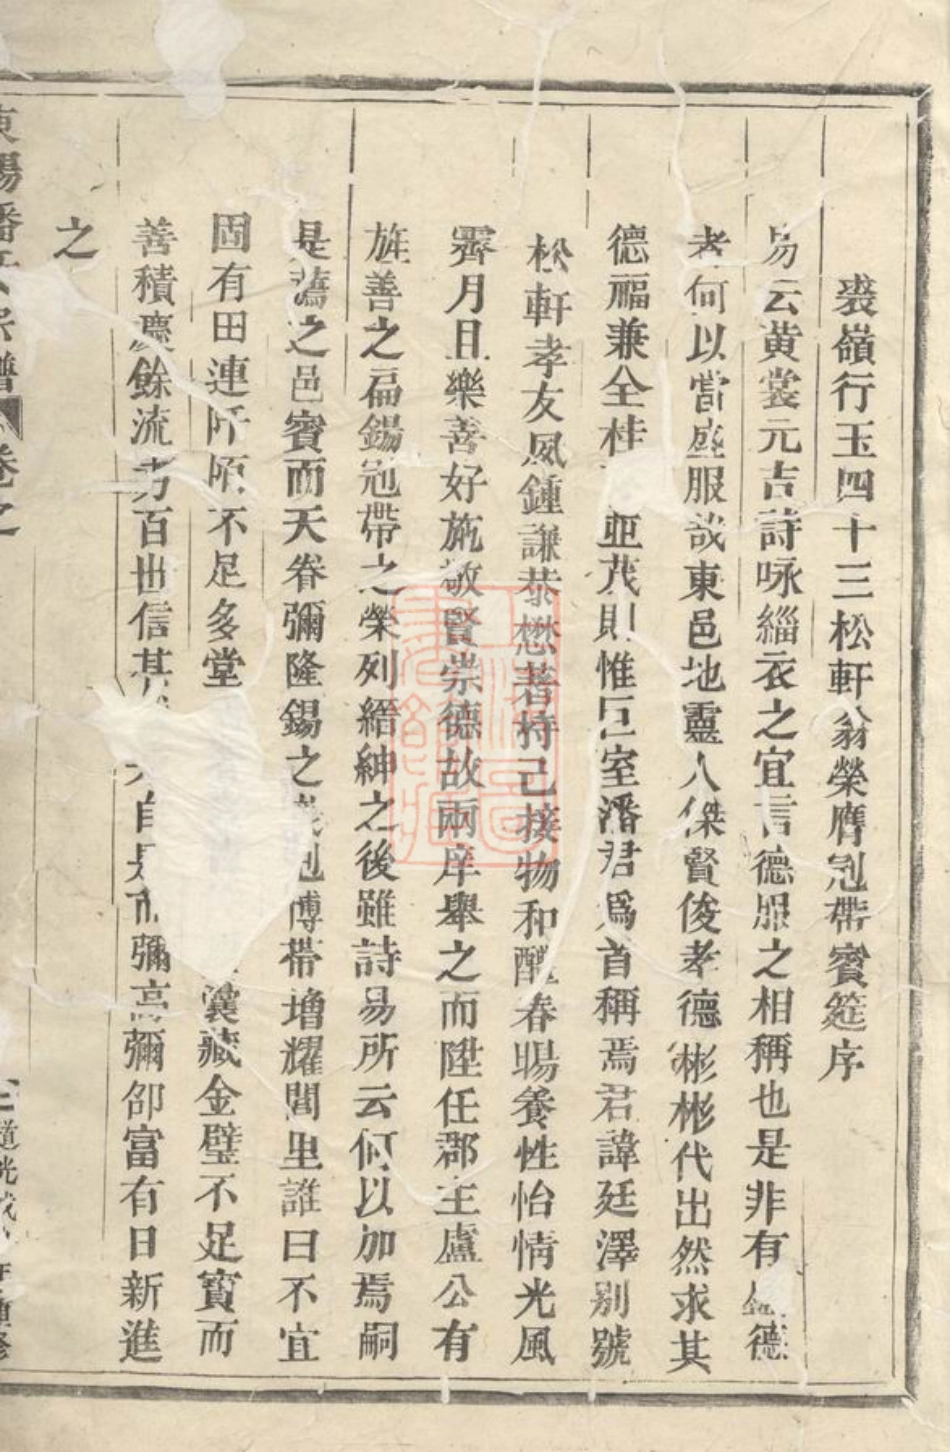 裘嶺行玉四十三松軒翁榮膺冠帶賓筵序
易云黄裳元吉詩咏緇衣之宜言德服之相稱也是非有德
者何以當盛服哉東邑地靈人傑賢俊孝德彬彬代出然求其
德福兼全桂亚茂則惟巨室潘君爲首稱焉君諱廷澤别號
松軒孝友夙鍾謙恭懋著持己接物和醴春暘養性怡情光風
霽月且樂善好施敬賢崇德故兩庠舉之而陞任郡主盧公有
旌善之扁錫冠帶之榮列縉紳之後雖詩易所云何以加焉嗣
是薦之邑賓而天眷彌隆錫之冠博带増耀閭里誰曰不宜
固有田連阡陌不足多堂囊藏金璧不足寳而
善積慶餘流芳百丗信自是而彌高彌卲富有日新進
之
東陽潘氏宗譜 卷之
道光戊年重修